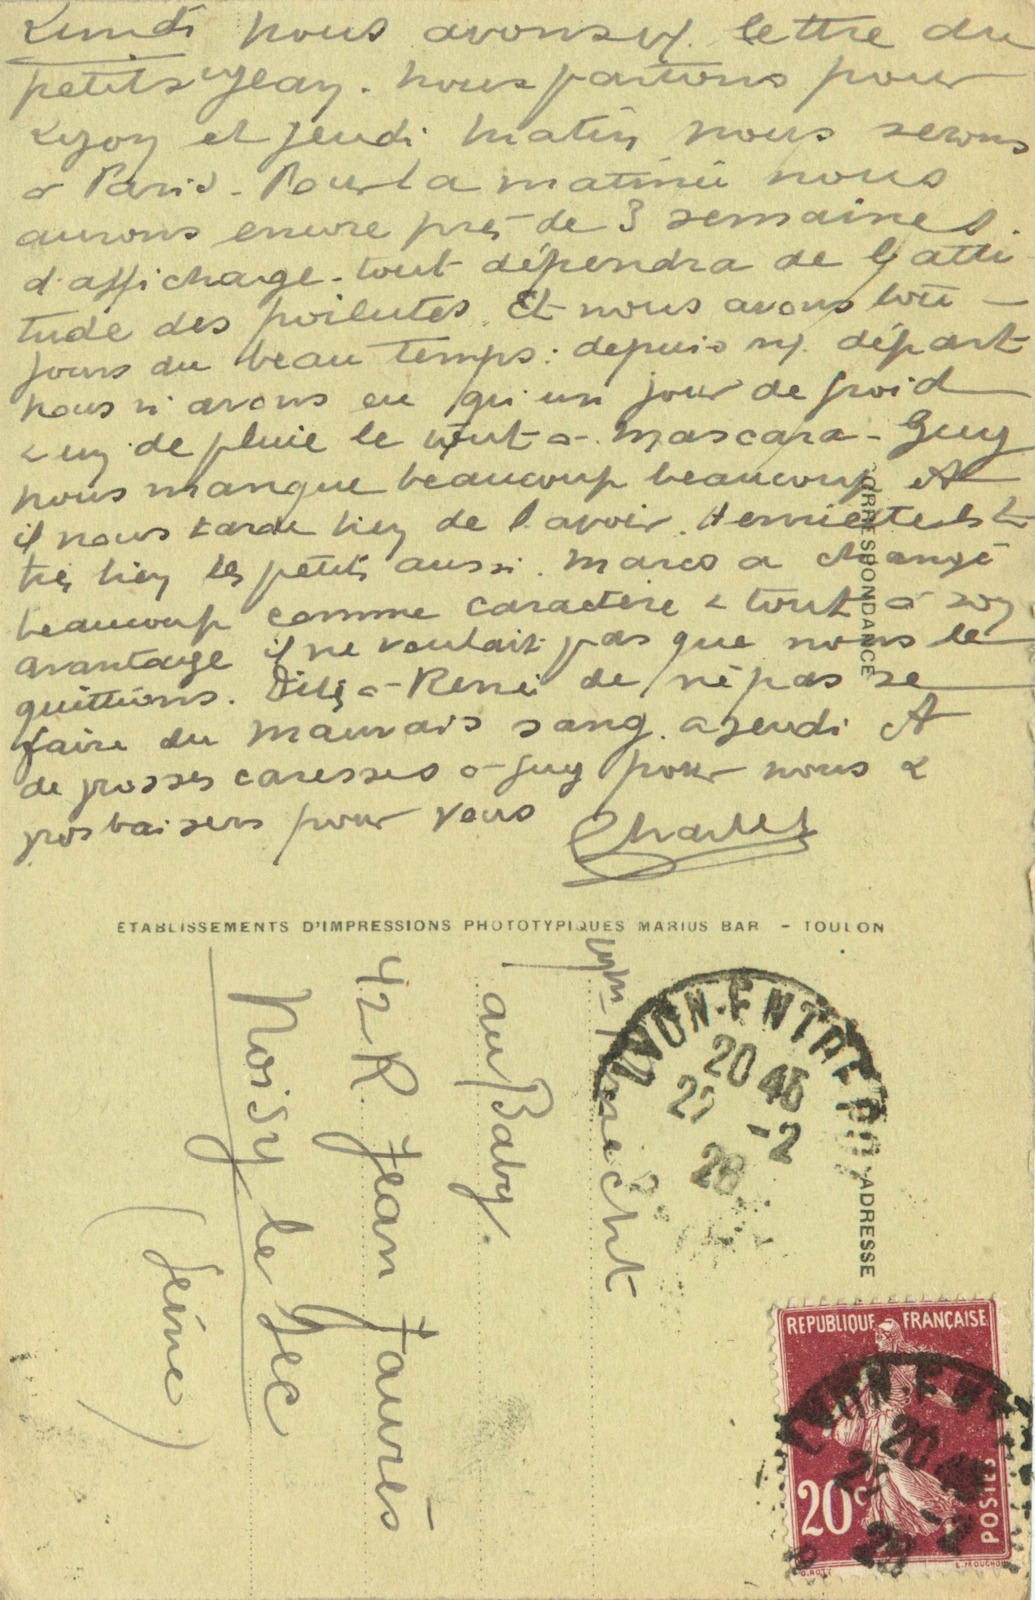 Lundi nous avons lettre du
petits Jean. nous partons pour
Lyon et Jeudi matin nous serons
a Paris. Pour la matinée nous
aurons encore près de 3 semaines
d'affichage. tout dépendra de l'atti
tude des poilutes. Et nous avons tou-
jours du beau temps: depuis départ
nous n'avons eu qu'un jour de froid
& un de pluie le tout a mascara. Guy
nous manque beaucoup beaucoup et
il nous tarde bien de l'avoir. Henriette
très bien les petits aussi. marco a changé
beaucoup comme caractère & tout à son
avantage il ne voulait pas que nous le
quittions. Dites a René de ne pas se
faire du mauvais sang. a jeudi et
de grosses caresses a guy pour nous &
gros baisers pour vous Charles
ÉTABLISSEMENTS D'IMPRESSIONS PHOTOTYPIQUES MARIUS BAR - TOULON
CORRESPONDANCE
ADRESSE
au Baby.
42 R. Jean Jaurès
Noisy le Sec
(Seine)
LYON-ENTREPOT
20 45
-2
28
REPUBLIQUE FRANÇAISE
20c
POSTES
O. ROTY
L-MOUCHON
LYON-ENT
20
-2
28